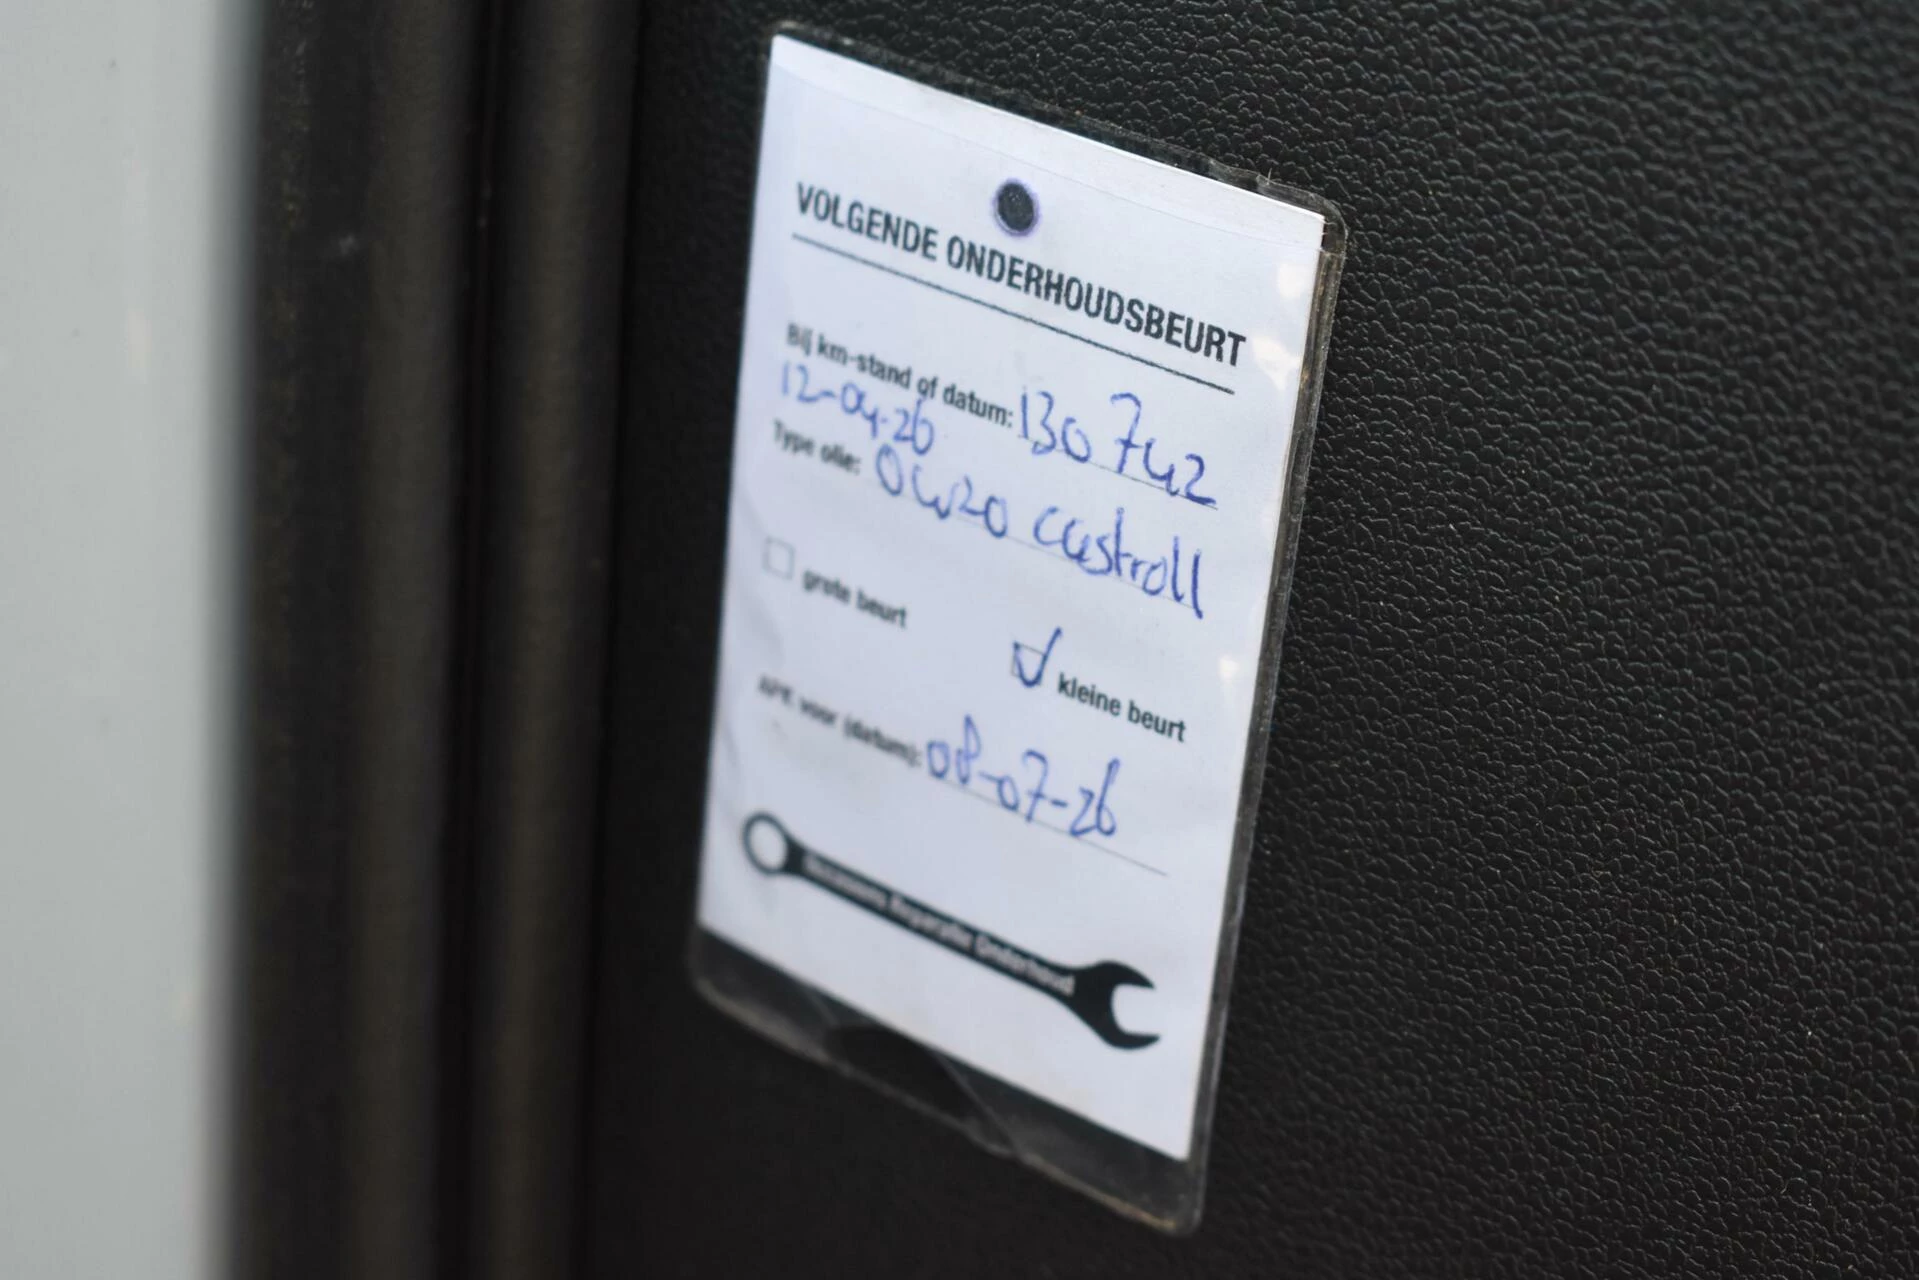 VOLGENDE ONDERHOUDSBEURT
Bij km-stand of datum: 130 742
12-04-26
Type olie: 0W20 castroll
grote beurt
kleine beurt
APK voor (datum): 08-07-26
Reparatie Onderhoud